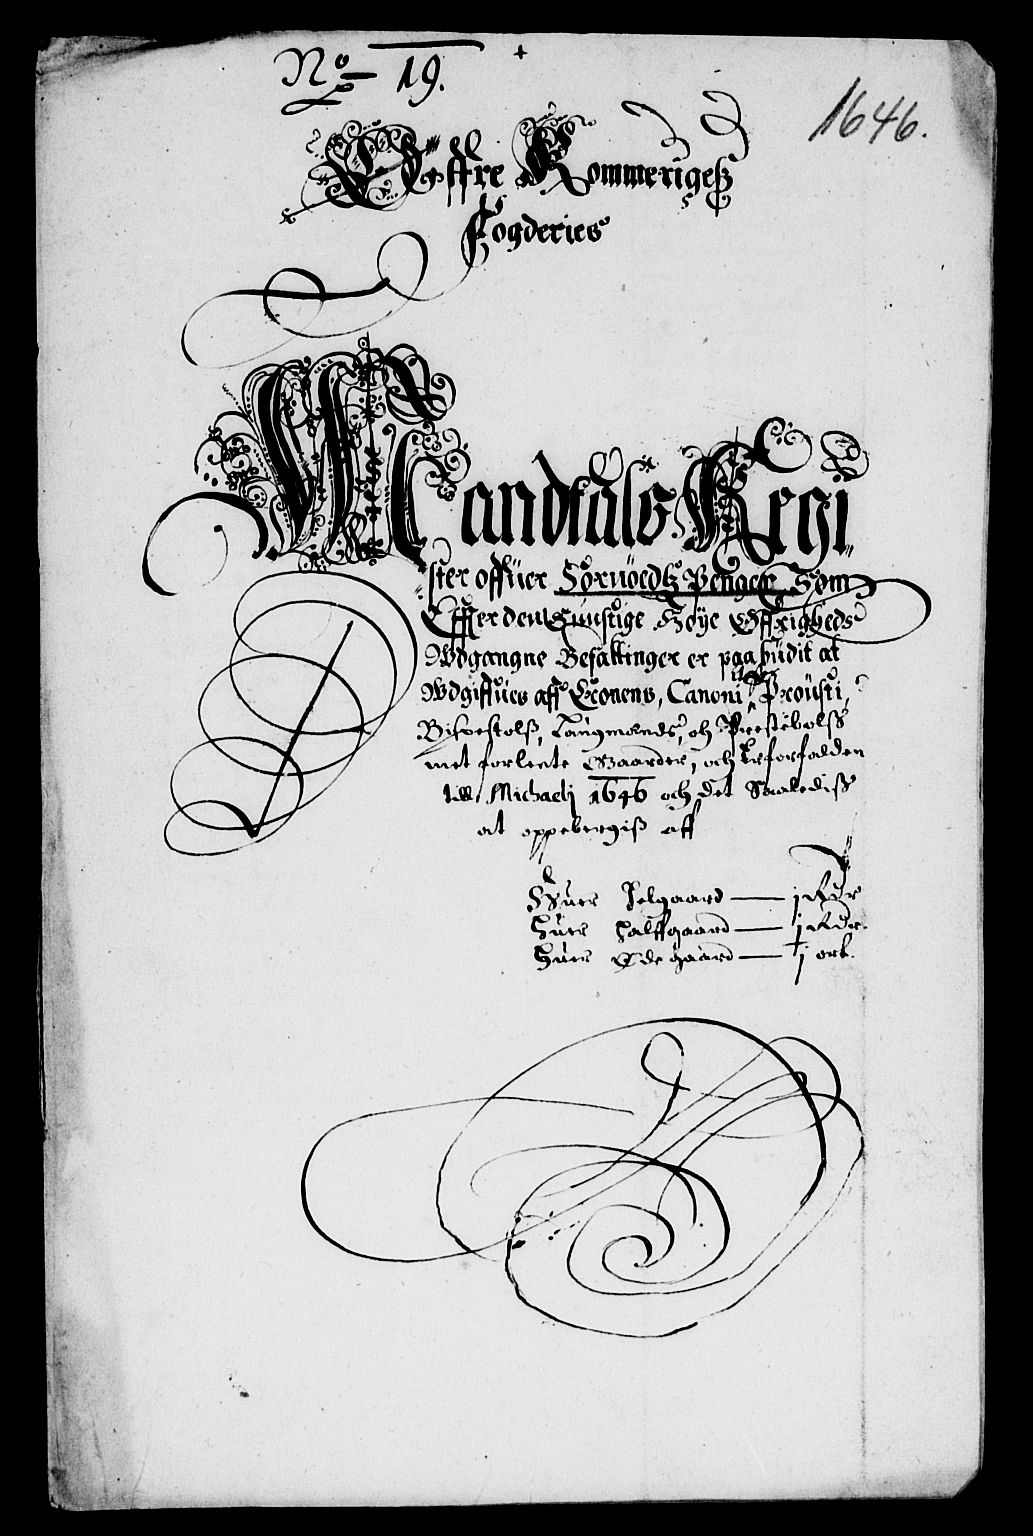 No 19.
1646.
Øffre Rommerigeß
Fogderies
Mandtals Regi
ster offuer SØruoedtz Penger, Som
Effter den Gunstige Høye Øffrigheds
Wdgangne Befallinger er paa budit at
Wdgiffues aff Cronens, Canoni, Prousti,
Bispestolß, Laugmands, och Prestebolß
met forlente Gaarder, och er forfalden
till Michaeli 1646 och det Saaledisß
at oppebergiß aff
Huer Helgaard — j Rdr
Huer halffgaard — j Rdr.
Huer Ødegaard — j ort.